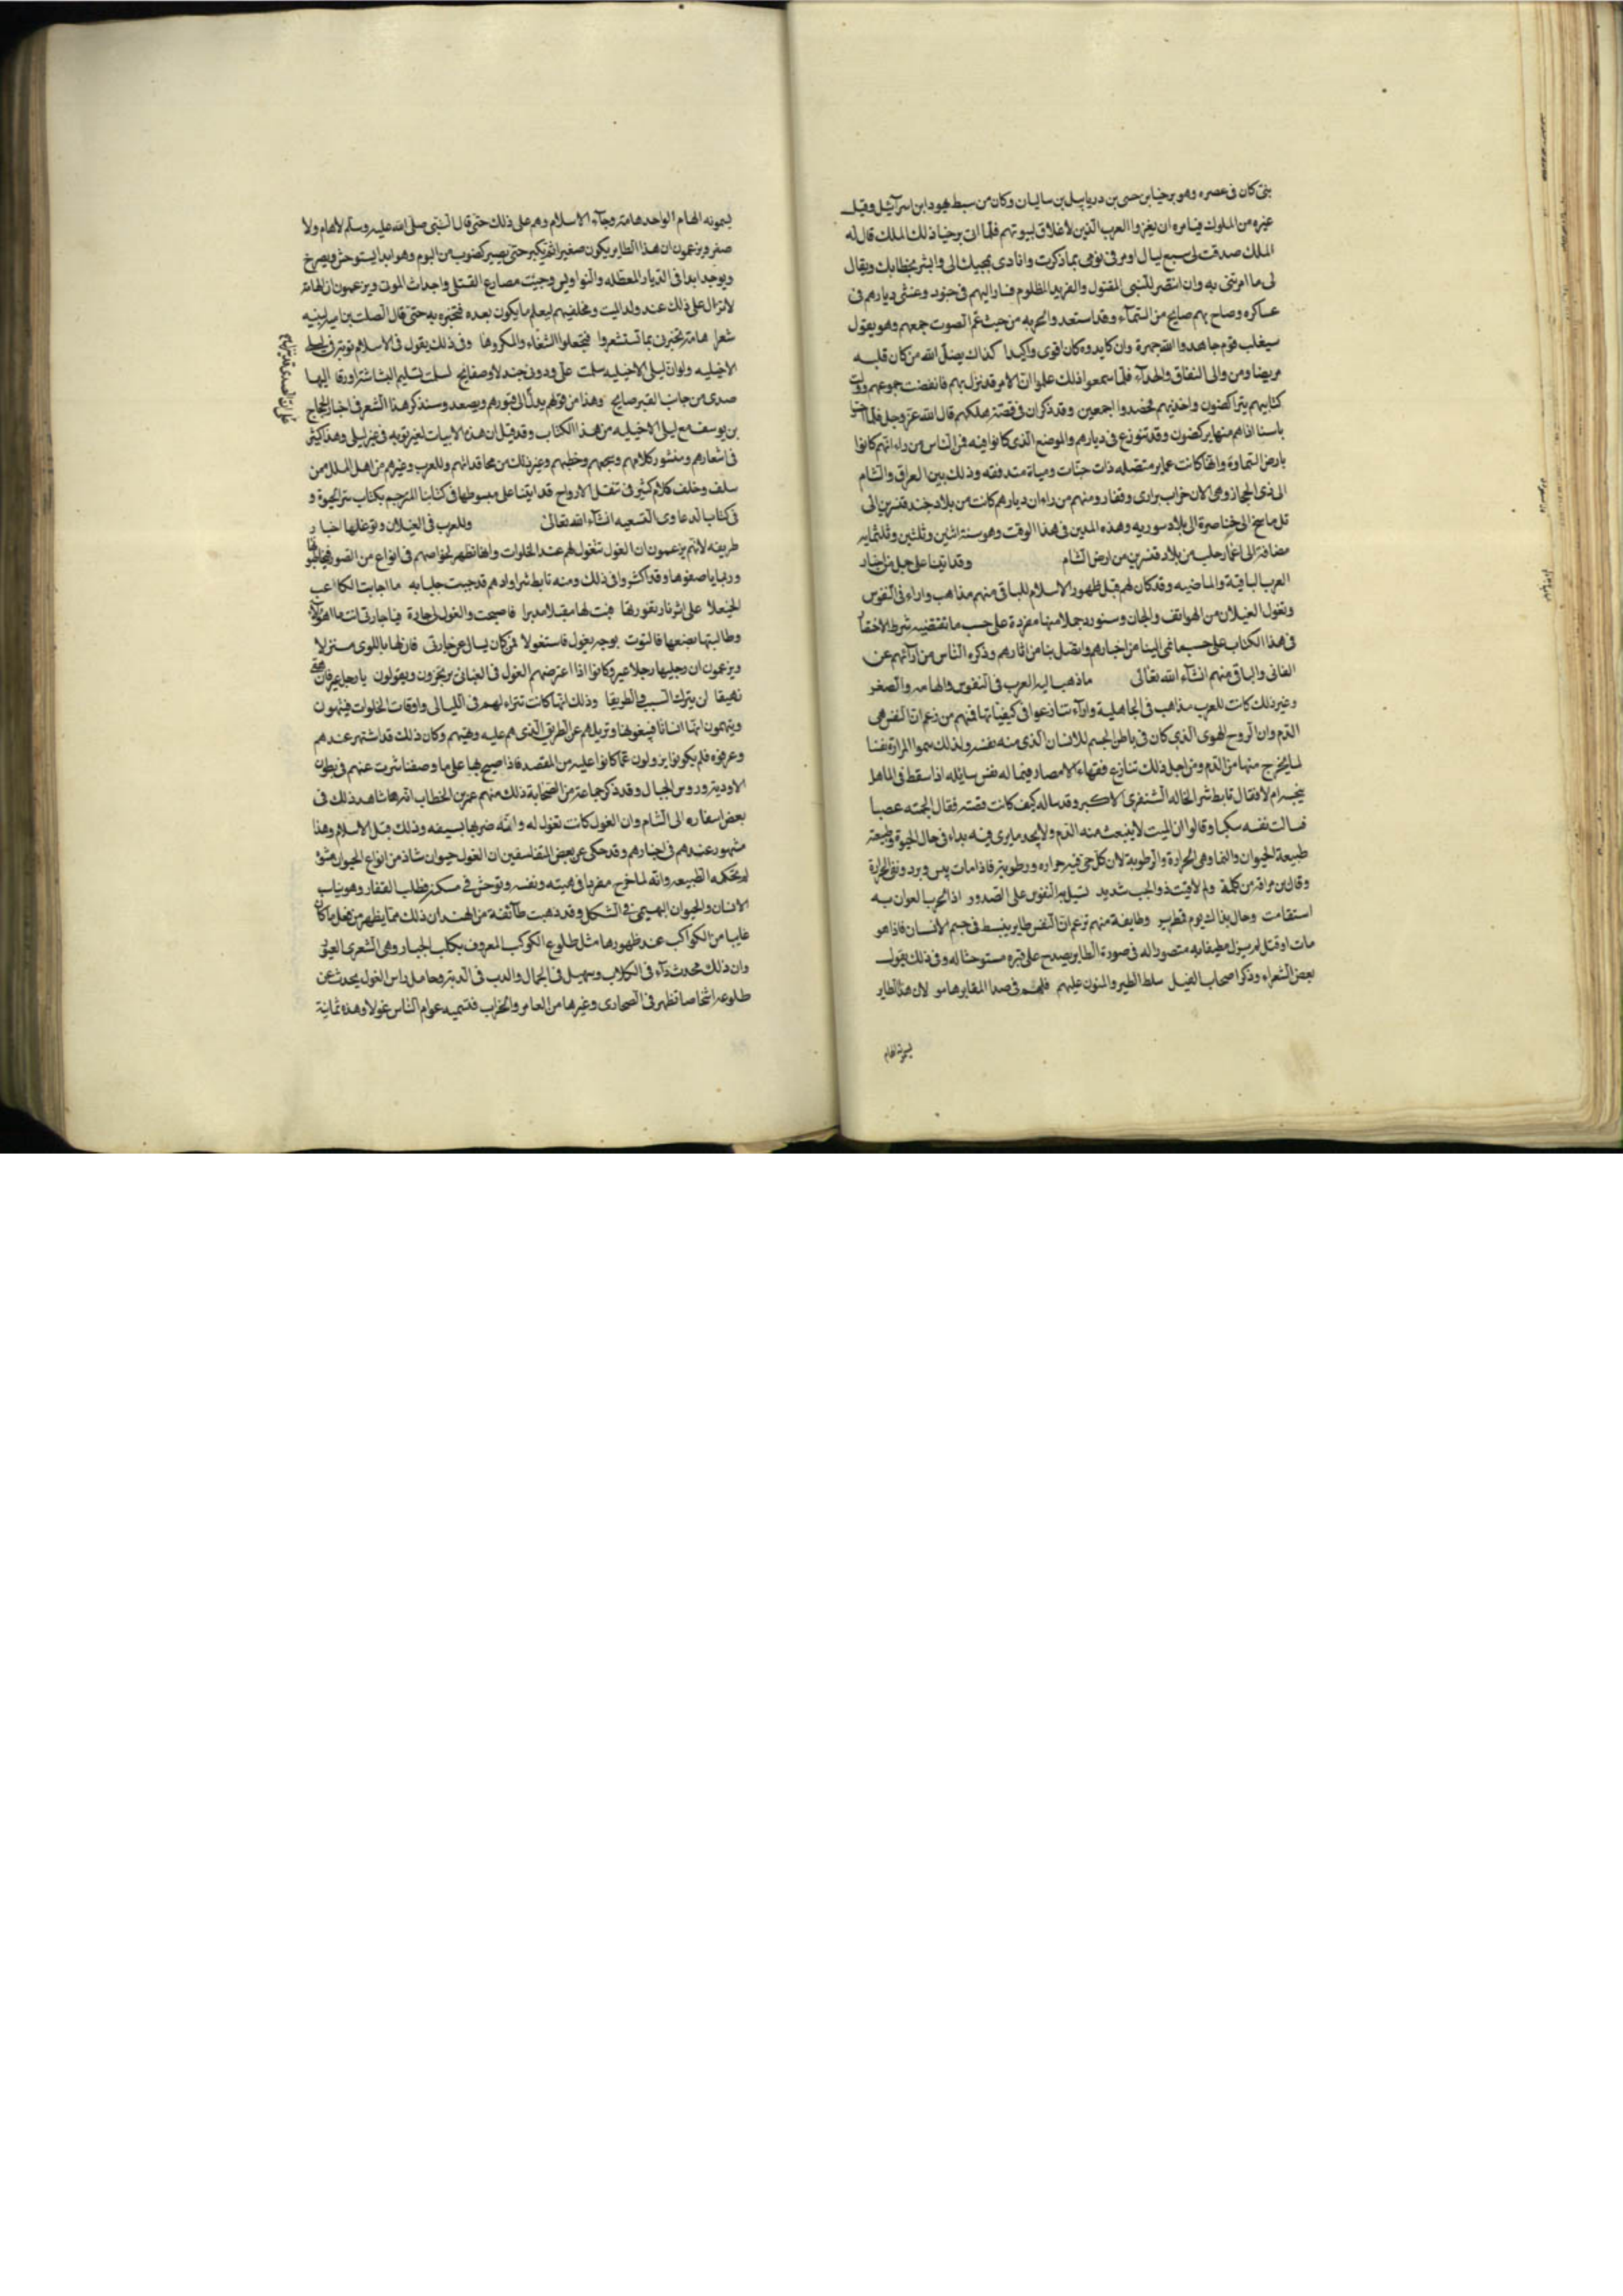 بنى كان فى عصره وهو برخيا بن حسى بن دريابيل بن ساليان وكان من سبط يهودا بن اسرآئيل وقيل
غيره من الملوك فيامره ان يغزوا العرب الذين لا غلاق لبيوتهم فلما اتى برخيا ذلك الملك قال له
الملك صدقت لى سبع ليال اومر فى نومى بما ذكرت وانادى بمجيك الى وابشر بخطابك ويقال
لى ما امرتنى به وان انتصر للنبى المقتول والفريد المظلوم فسار اليهم فى جنود وغشى ديارهم فى
عساكره وصاح بهم صايح من السمآء وقد استعدوا لحربه من حيث عم الصوت جمعهم وهو يقول
سيغلب قوم جاهدوا الله جهرة وان كايدوه كان اقوى واكيدا كذاك يضل الله من كان قلبه
مريضا ومن والى النفاق والحدآء فلما سمعوا ذلك علموا ان الامر قد نزل بهم فانفضت جموعهم وولت
كتايبهم يتراكضون واخذتهم فحصدوا اجمعين وقد ذكر ان فى قصة هلكهم قال الله عز وجل فلما احسوا
باسنا اذا هم منها يركضون وقد تنوزع فى ديارهم والموضع الذى كانوا فيه فمن الناس من راى انهم كانوا
بارض السماوة وانها كانت عماير متصله ذات جنات ومياة متدفقه وذلك بين العراق والشام
الى ذى الحجاز وهى الان خراب برارى وقفار ومنهم من راى ان ديارهم كانت من بلاد جند قنسرين الى
تل ماسح الى خناصرة الى بلاد سوريه وهذه المدن فى هذا الوقت وهو سنة اثنين وثلثين وثلثمايه
مضافة الى اعمار حلب من بلاد قنسرين من ارض الشام وقد اتينا على جمل من اخبار
العرب الباقية والماضيه وقد كان لهم قبل ظهور الاسلام للباقى منهم مذاهب واراء فى النفوس
وتغول الغيلان من الهواتف والجان وسنورد جملا منها مفردة على حسب ما تقتضيه شرط الاختصار
فى هذا الكتاب على حسب ما نمى الينا من اخبارهم واتصل بنا من اثارهم وذكره الناس من ارآئهم عن
الفانى والباقى منهم انشآء الله تعالى ما ذهب اليه العرب فى النفوس والهامه والصغر
وغير ذلك كانت للعرب مذاهب فى الجاهلية وارآء تنازعوا فى كيفياتها فمنهم من زعم ان النفس هى
الدم وان الروح الهوى الذى كان فى باطن الجسم للانسان الذى منه نفسه ولذلك سموا المراة نفسا
لما يخرج منها من الدم ومن اجل ذلك تنازع فقهاء الامصار فيما له نفس سايله اذا سقط فى الماء هل
ينجسه ام لا فقال تابط شرا لخاله الشنفرى الاكبر وقد ساله كيف كانت قصته فقال الجمته عصبا
فسالت نفسه سكبا وقالوا ان الميت لا ينبعث منه الدم ولا يجد ما يرى فيه بداء فى حال الحيوة وطبيعته
طبيعة الحيوان والنما وهى الحرارة والرطوبة لان كل حى فيه حراره ورطوبة فاذا مات يبس وبرد ونفى الحرارة
وقال بن مراقه من كلمة ولم لاقيت ذو الجب شديد تسيل به النفوس على الصدور اذا الحرب العوان به
استقامت وحال بذاك يوم قمطرير وطايفة منهم تزعم ان النفس طاير ينبسط فى جسم الانسان فاذا هو
مات او قتل لم يزل مطيفا به متصورا له فى صورة الطاير يصدح على قبره مستوحشا له وفى ذلك يقول
بعض الشعراء وذكر اصحاب الفيل سلط الطير والمنون عليهم فلهم فى صدا المقابر هامو لان هذا الطاير
يسمونه الهام
يسمونه الهام الواحد هامة وجآء الاسلام وهم على ذلك حتى قال النبى صلى الله عليه وسلم لا هام ولا
صفر ويزعمون ان هذا الطاير يكون صغيرا ثم يكبر حتى يصير كضرب من البوم وهو ابدا يستوحش ويصرخ
ويوجد ابدا فى الديار المعطله والنواويس وحيث مصارع القتلى واجداث الموتى ويزعمون ان الهامة
لا تزال على ذلك عند ولد الميت ومخلفيهم ليعلم ما يكون بعده فتخبره به حتى قال الصلت بن امية لبنيه
شعرا هامتى تخبرنى بما تستشعروا فتجعلوا الشغاء والمكروها وفى ذلك يقول فى الاسلام توبة فى ليلى
الاخيليه ولو ان ليلى الاخيليه سلمت على ودونى جندل وصفايح لسلمت تسليم البشاشة او زقا اليها
صدى من جانب القبر صايح وهذا من قولهم يدل الى قبورهم ويصعد وسنذكر هذا الشعر فى اخبار الحجاج
بن يوسف مع ليلى الاخيليه من هذا الكتاب وقد قيل ان هذه الابيات لغير توبه فى غير ليلى وهذا كثير
فى اشعارهم ومنثور كلامهم وسجعهم وخطبهم وغير ذلك من محاوراتهم وللعرب وغيرهم من اهل الملل ممن
سلف وخلف كلام كثير فى تنقل الارواح قد اتينا على مبسوطها فى كتابنا المترجم بكتاب سر الحيوة و
فى كتاب الدعاوى الشنيعه انشآء الله تعالى وللعرب فى الغيلان وتوغلها اخبار
طريفه لانهم يزعمون ان الغول تتغول لهم عند الخلوات وانها تظهر لخواصهم فى انواع من الصور فيخاطبونها
وربما يا صفوها وقد اكثروا فى ذلك ومنه تابط شرا وادهم قد جبت جلبابه ما اجابت الكاعب
الخيعلا على اثر نار تقور بها فبت لها مقبلا مدبرا فاصبحت والغول لى جارة فيا جارتى انت ما اهولا
وطالبتها بضعها فالتوت بوجه يغول فاستغولا فمن كان يسال عن جارتى فان لها باللوى منزلا
ويزعمون ان رجليها رجلا عير وكانوا اذا اعترضتهم الغول فى الفيافى يرتجزون ويقولون يا رجل عير فانهقى
نهيقا لن يترك السبسب والطريقا وذلك انها كانت تترآء لهم فى الليالى واوقات الخلوات فيتهمون
ويتهمون انها انسانا فيتبعونها وتزيلهم عن الطريق الذى هم عليه وهيتهم وكان ذلك قد اشتهر عندهم
وعرفوه فلم يكونوا يزولون عما كانوا عليه من المقصد فاذا صيح بها على ما وصفنا شردت عنهم فى بطون
الاودية وروس الجبال وقد ذكر جماعة من الصحابة ذلك منهم عمر بن الخطاب انه شاهد ذلك فى
بعض اسفاره الى الشام وان الغول كانت تغول له وانه ضربها بسيفه وذلك قبل الاسلام وهذا
مشهور عندهم فى اخبارهم وقد حكى عن بعض المتفلسفين ان الغول حيوان شاذ من انواع الحيوان مشوه
لم تحكمه الطبيعه وانه لما خرج مفردا فى هيئته ونفسه وتوحش فى مسكنه فطلب القفار وهو يناسب
الانسان والحيوان البهيمى فى الشكل وقد ذهبت طآئفة من الهند ان ذلك مما يظهر من فعل ما كان
غايبا من الكواكب عند ظهورها مثل طلوع الكوكب المعروف بكلب الجبار وهى الشعرى العبور
وان ذلك يحدث دآء فى الكلاب وسهيل فى الجمال والدب فى الدبة وحامل راس الغول يحدث عن
طلوعه اشخاصا تظهر فى الصحارى وغيرها من العامر والخراب فتسميه عوام الناس غولا وهذه ثمانية